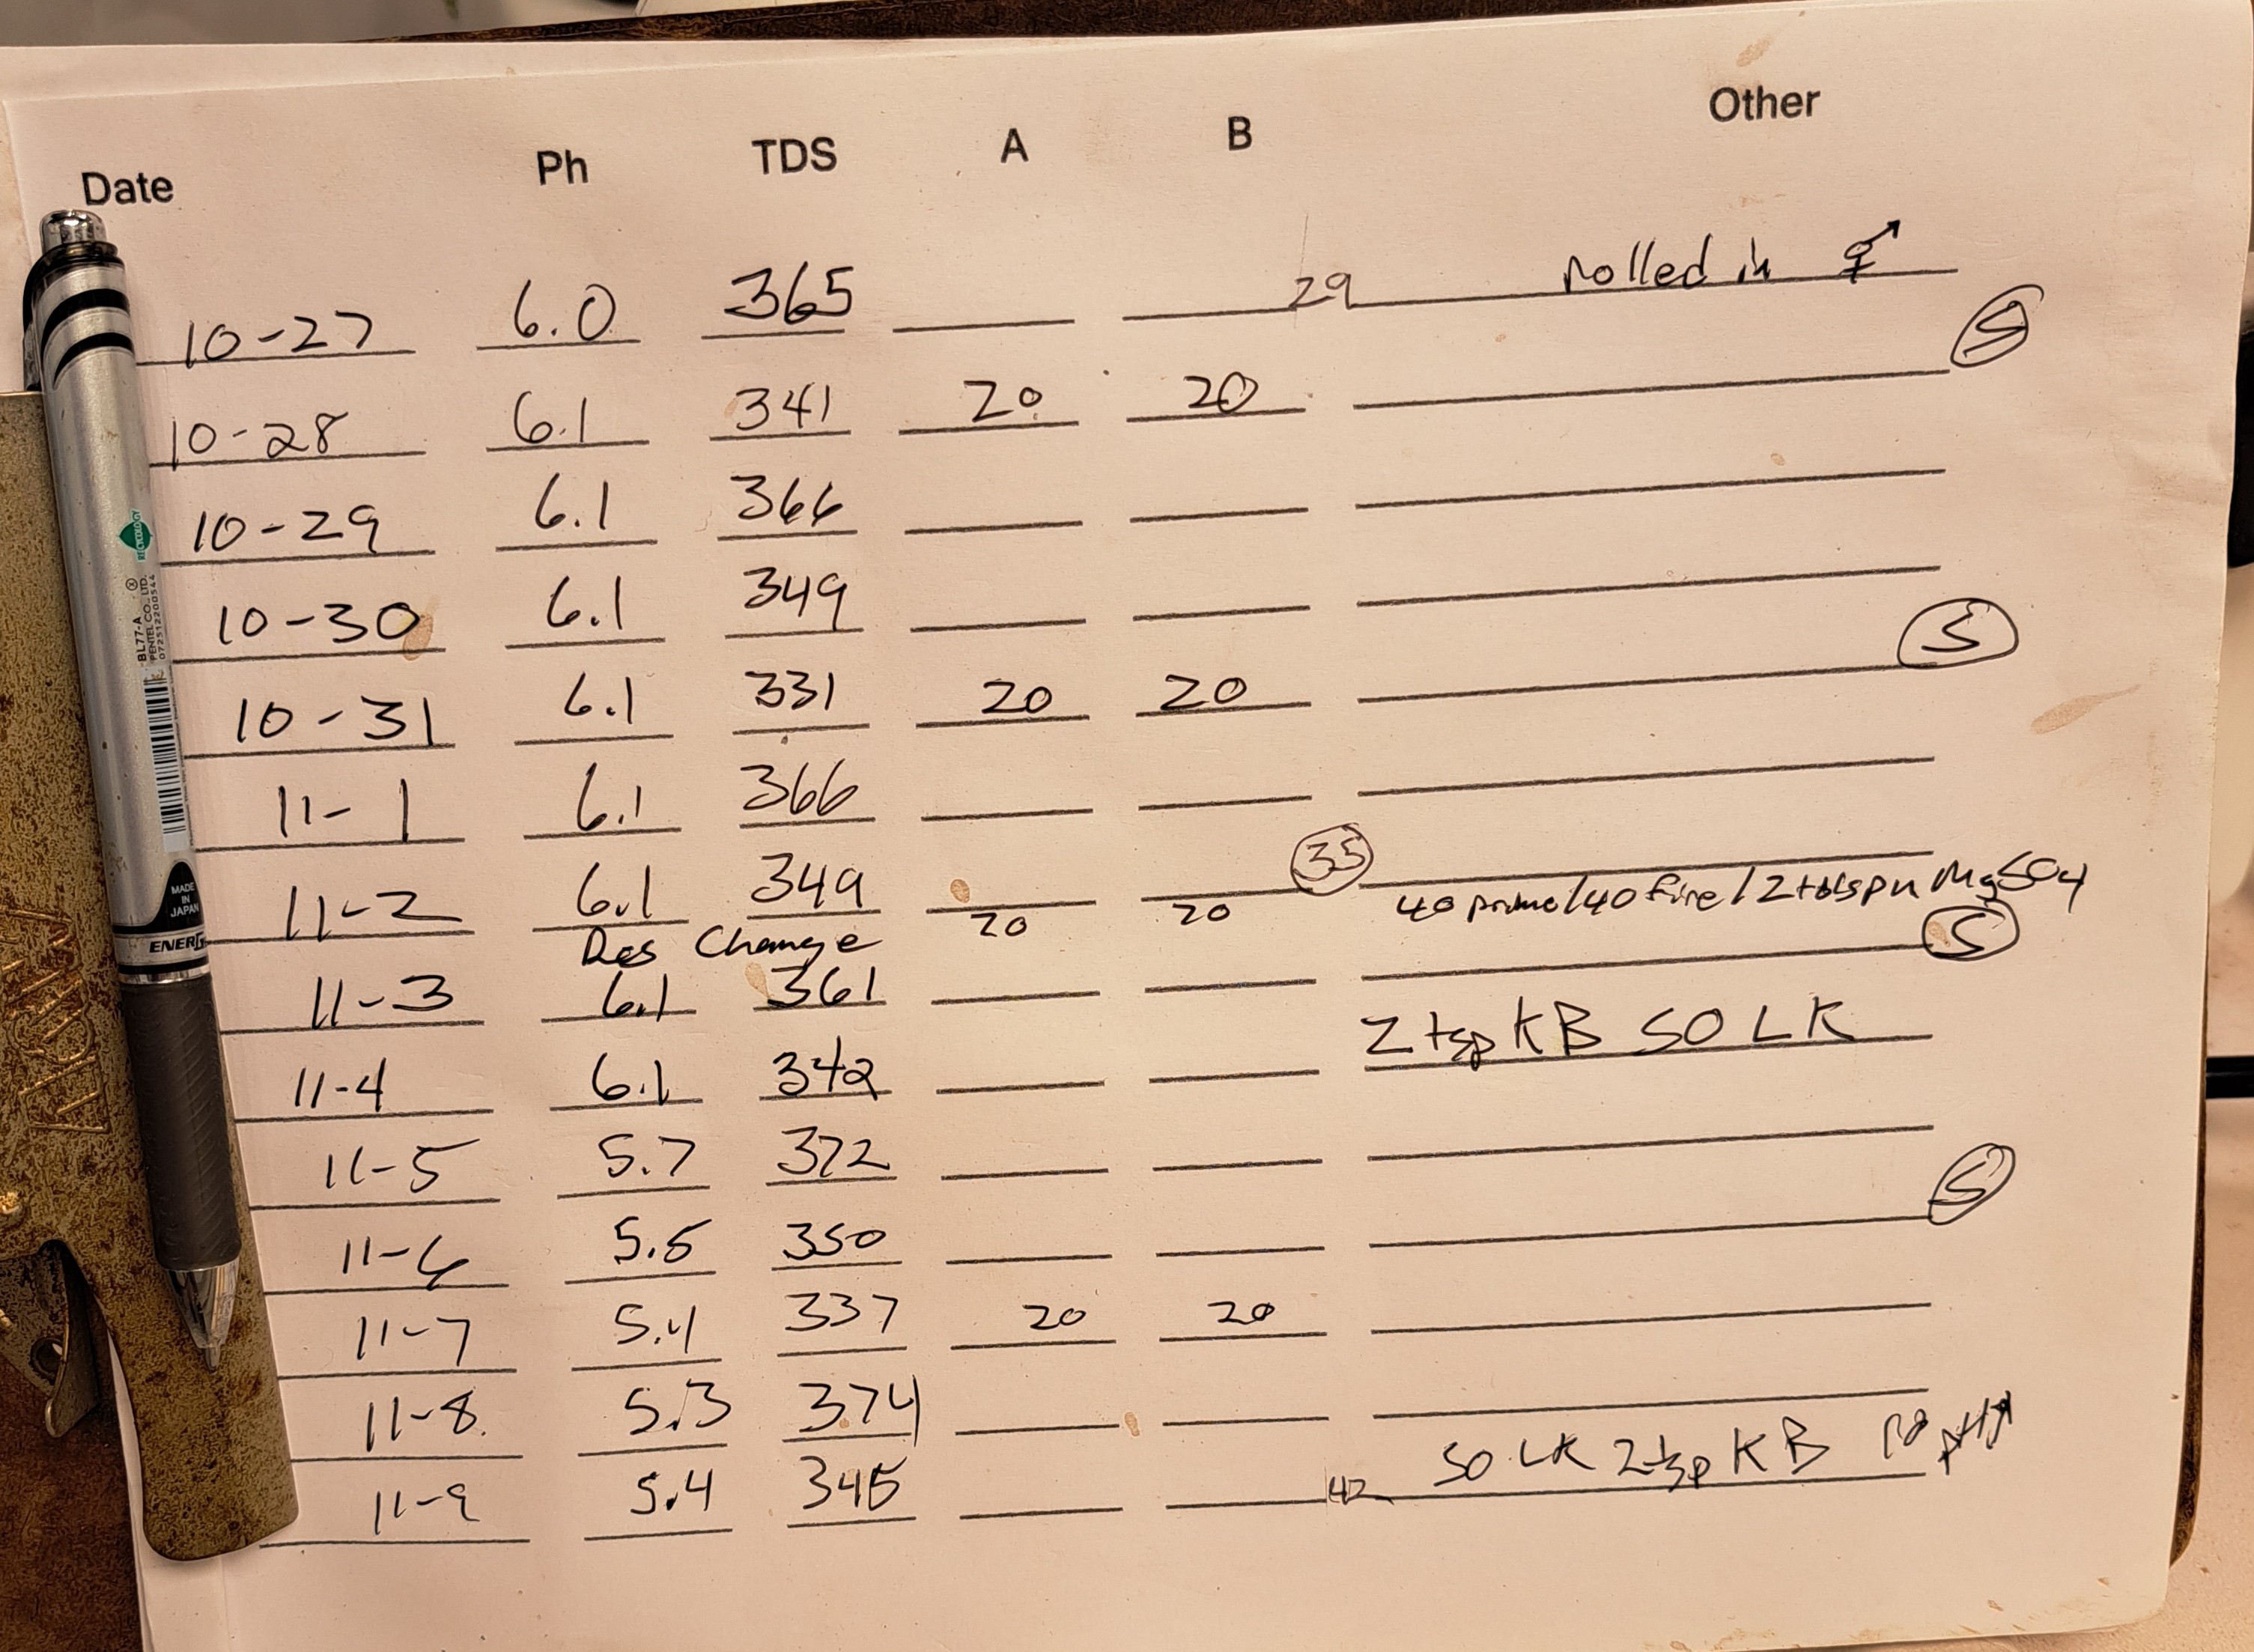 Date Ph TDS A B Other
10-27 6.0 365 29 rolled in
S
10-28 6.1 341 20 20
10-29 6.1 366
10-30 6.1 349
S
10-31 6.1 331 20 20
11-1 6.1 366
35
11-2 6.1 349 20 20 40 prime/40 fire/2 tblspn MgSO4
Res Change
S
11-3 6.1 361
2 tsp KB SO LK
11-4 6.1 342
11-5 5.7 372
S
11-6 5.5 350
11-7 5.4 337 20 20
11-8 5.3 374
11-9 5.4 345 42 SO LK 2 tsp KB
RECYCOLOGY
BL77-A
PENTEL CO., LTD.
072512200544
MADE
IN
JAPAN
ENERG